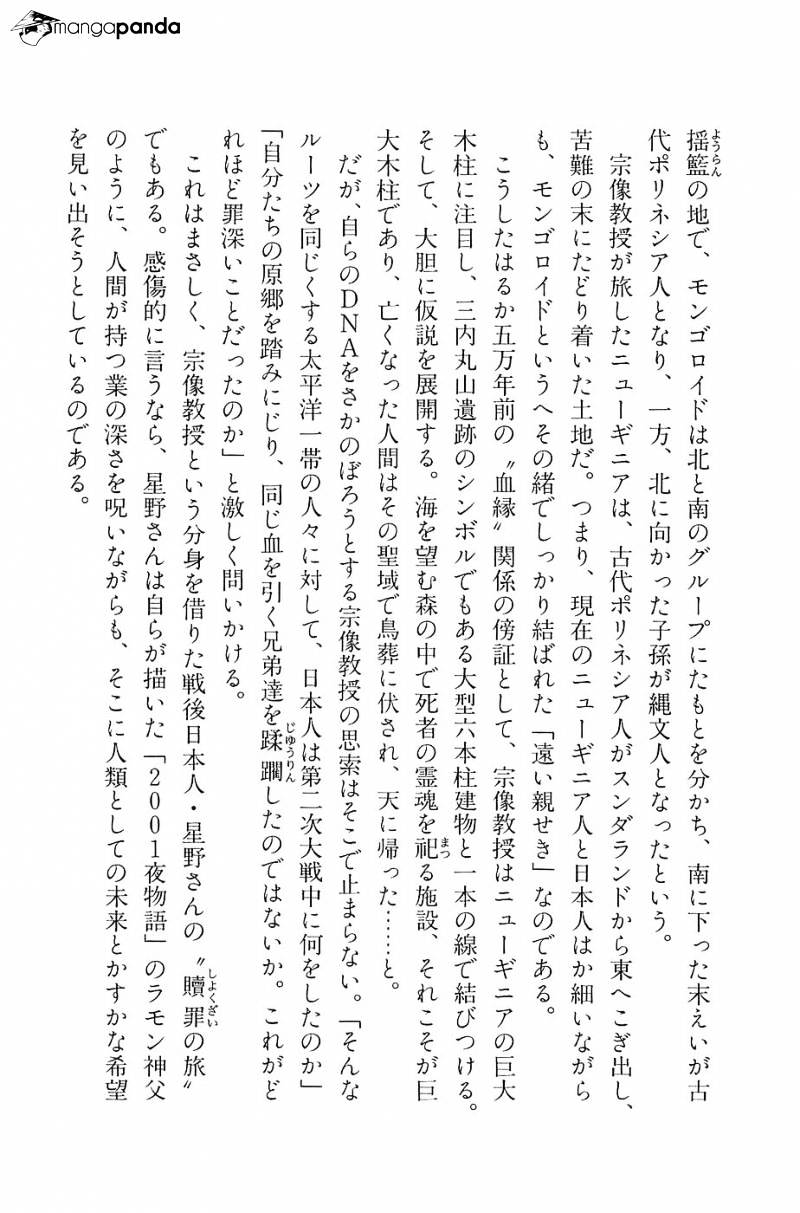 mangapanda
揺籃の地で、モンゴロイドは北と南のグループにたもとを分かち、南に下った末えいが古
代ポリネシア人となり、一方、北に向かった子孫が縄文人となったという。
宗像教授が旅したニューギニアは、古代ポリネシア人がスンダランドから東へこぎ出し、
苦難の末にたどり着いた土地だ。つまり、現在のニューギニア人と日本人はか細いながら
も、モンゴロイドというへその緒でしっかり結ばれた「遠い親せき」なのである。
こうしたはるか五万年前の〝血縁〟関係の傍証として、宗像教授はニューギニアの巨大
木柱に注目し、三内丸山遺跡のシンボルでもある大型六本柱建物と一本の線で結びつける。
そして、大胆に仮説を展開する。海を望む森の中で死者の霊魂を祀る施設、それこそが巨
大木柱であり、亡くなった人間はその聖域で鳥葬に伏され、天に帰った……と。
だが、自らのDNAをさかのぼろうとする宗像教授の思索はそこで止まらない。「そんな
ルーツを同じくする太平洋一帯の人々に対して、日本人は第二次大戦中に何をしたのか」
「自分たちの原郷を踏みにじり、同じ血を引く兄弟達を蹂躙したのではないか。これがど
れほど罪深いことだったのか」と激しく問いかける。
これはまさしく、宗像教授という分身を借りた戦後日本人・星野さんの〝贖罪の旅〟
でもある。感傷的に言うなら、星野さんは自らが描いた「2001夜物語」のラモン神父
のように、人間が持つ業の深さを呪いながらも、そこに人類としての未来とかすかな希望
を見い出そうとしているのである。